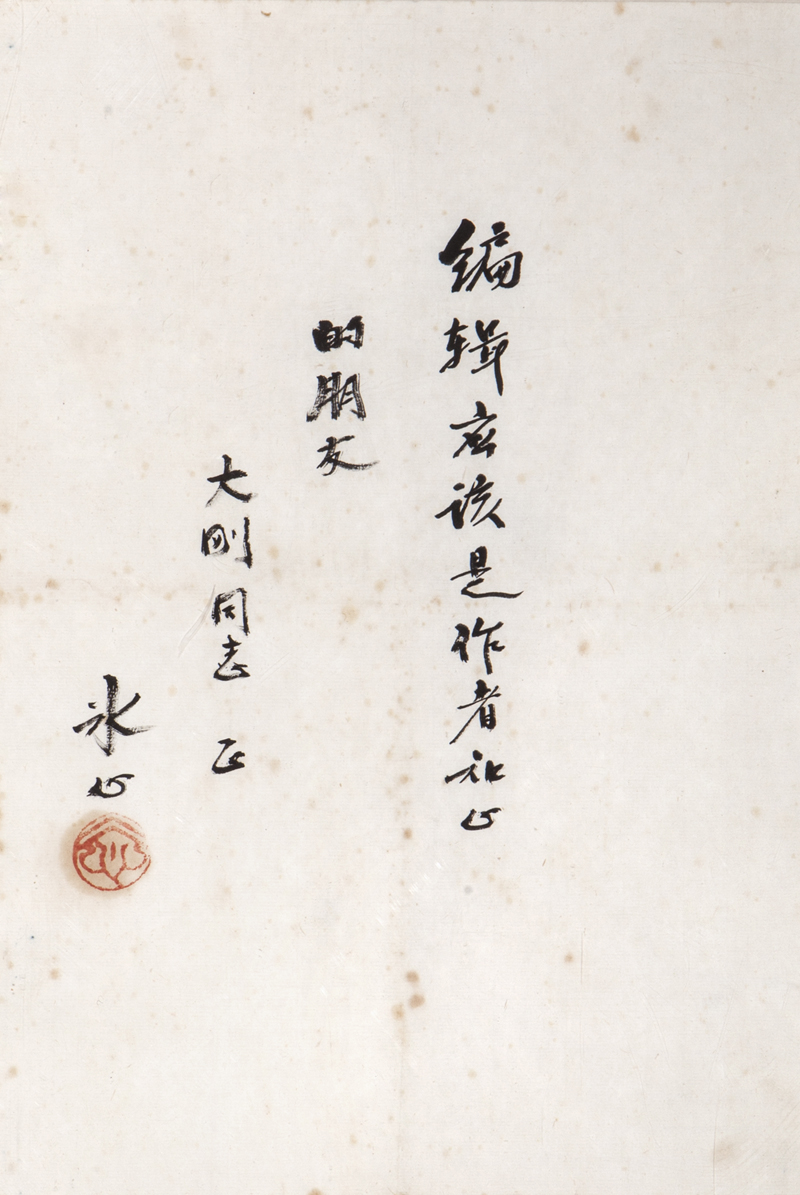 编辑应该是作者知心
的朋友
大刚同志 正
冰心